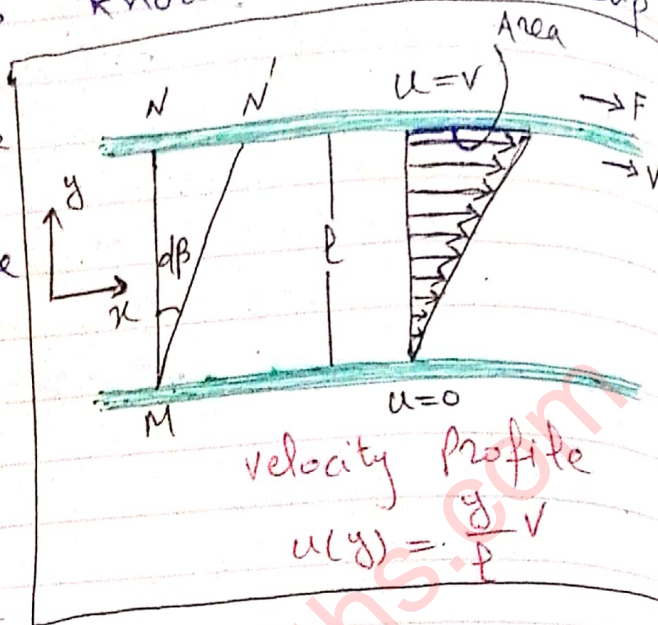 Area
N N' u=v → F
→ V
y
dβ
l
x
M u=0
velocity Profile
u(y) = y/l V